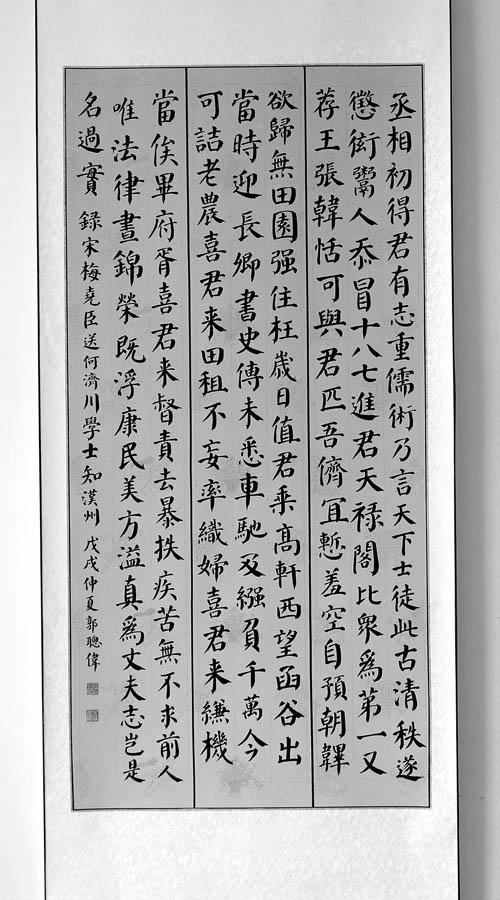 丞相初得君有志重儒術乃言天下士徒此古清秩遂
懲衒鬻人忝冒十八七進君天禄閣比衆爲第一又
荐王張韓恬可與君匹吾儕宜慙羞空自預朝鞸
欲歸無田園强住枉歲日值君乘高軒西望函谷出
當時迎長卿書史傳未悉車馳及繦負千萬今
可詰老農喜君来田租不妄率織婦喜君来縑機
當俟畢府胥喜君来督責去暴抶疾苦無不求前人
唯法律晝錦榮既浮康民美方溢真爲丈夫志豈是
名過實 録宋梅堯臣送何濟川學士知漢州 戊戌仲夏郭聰偉